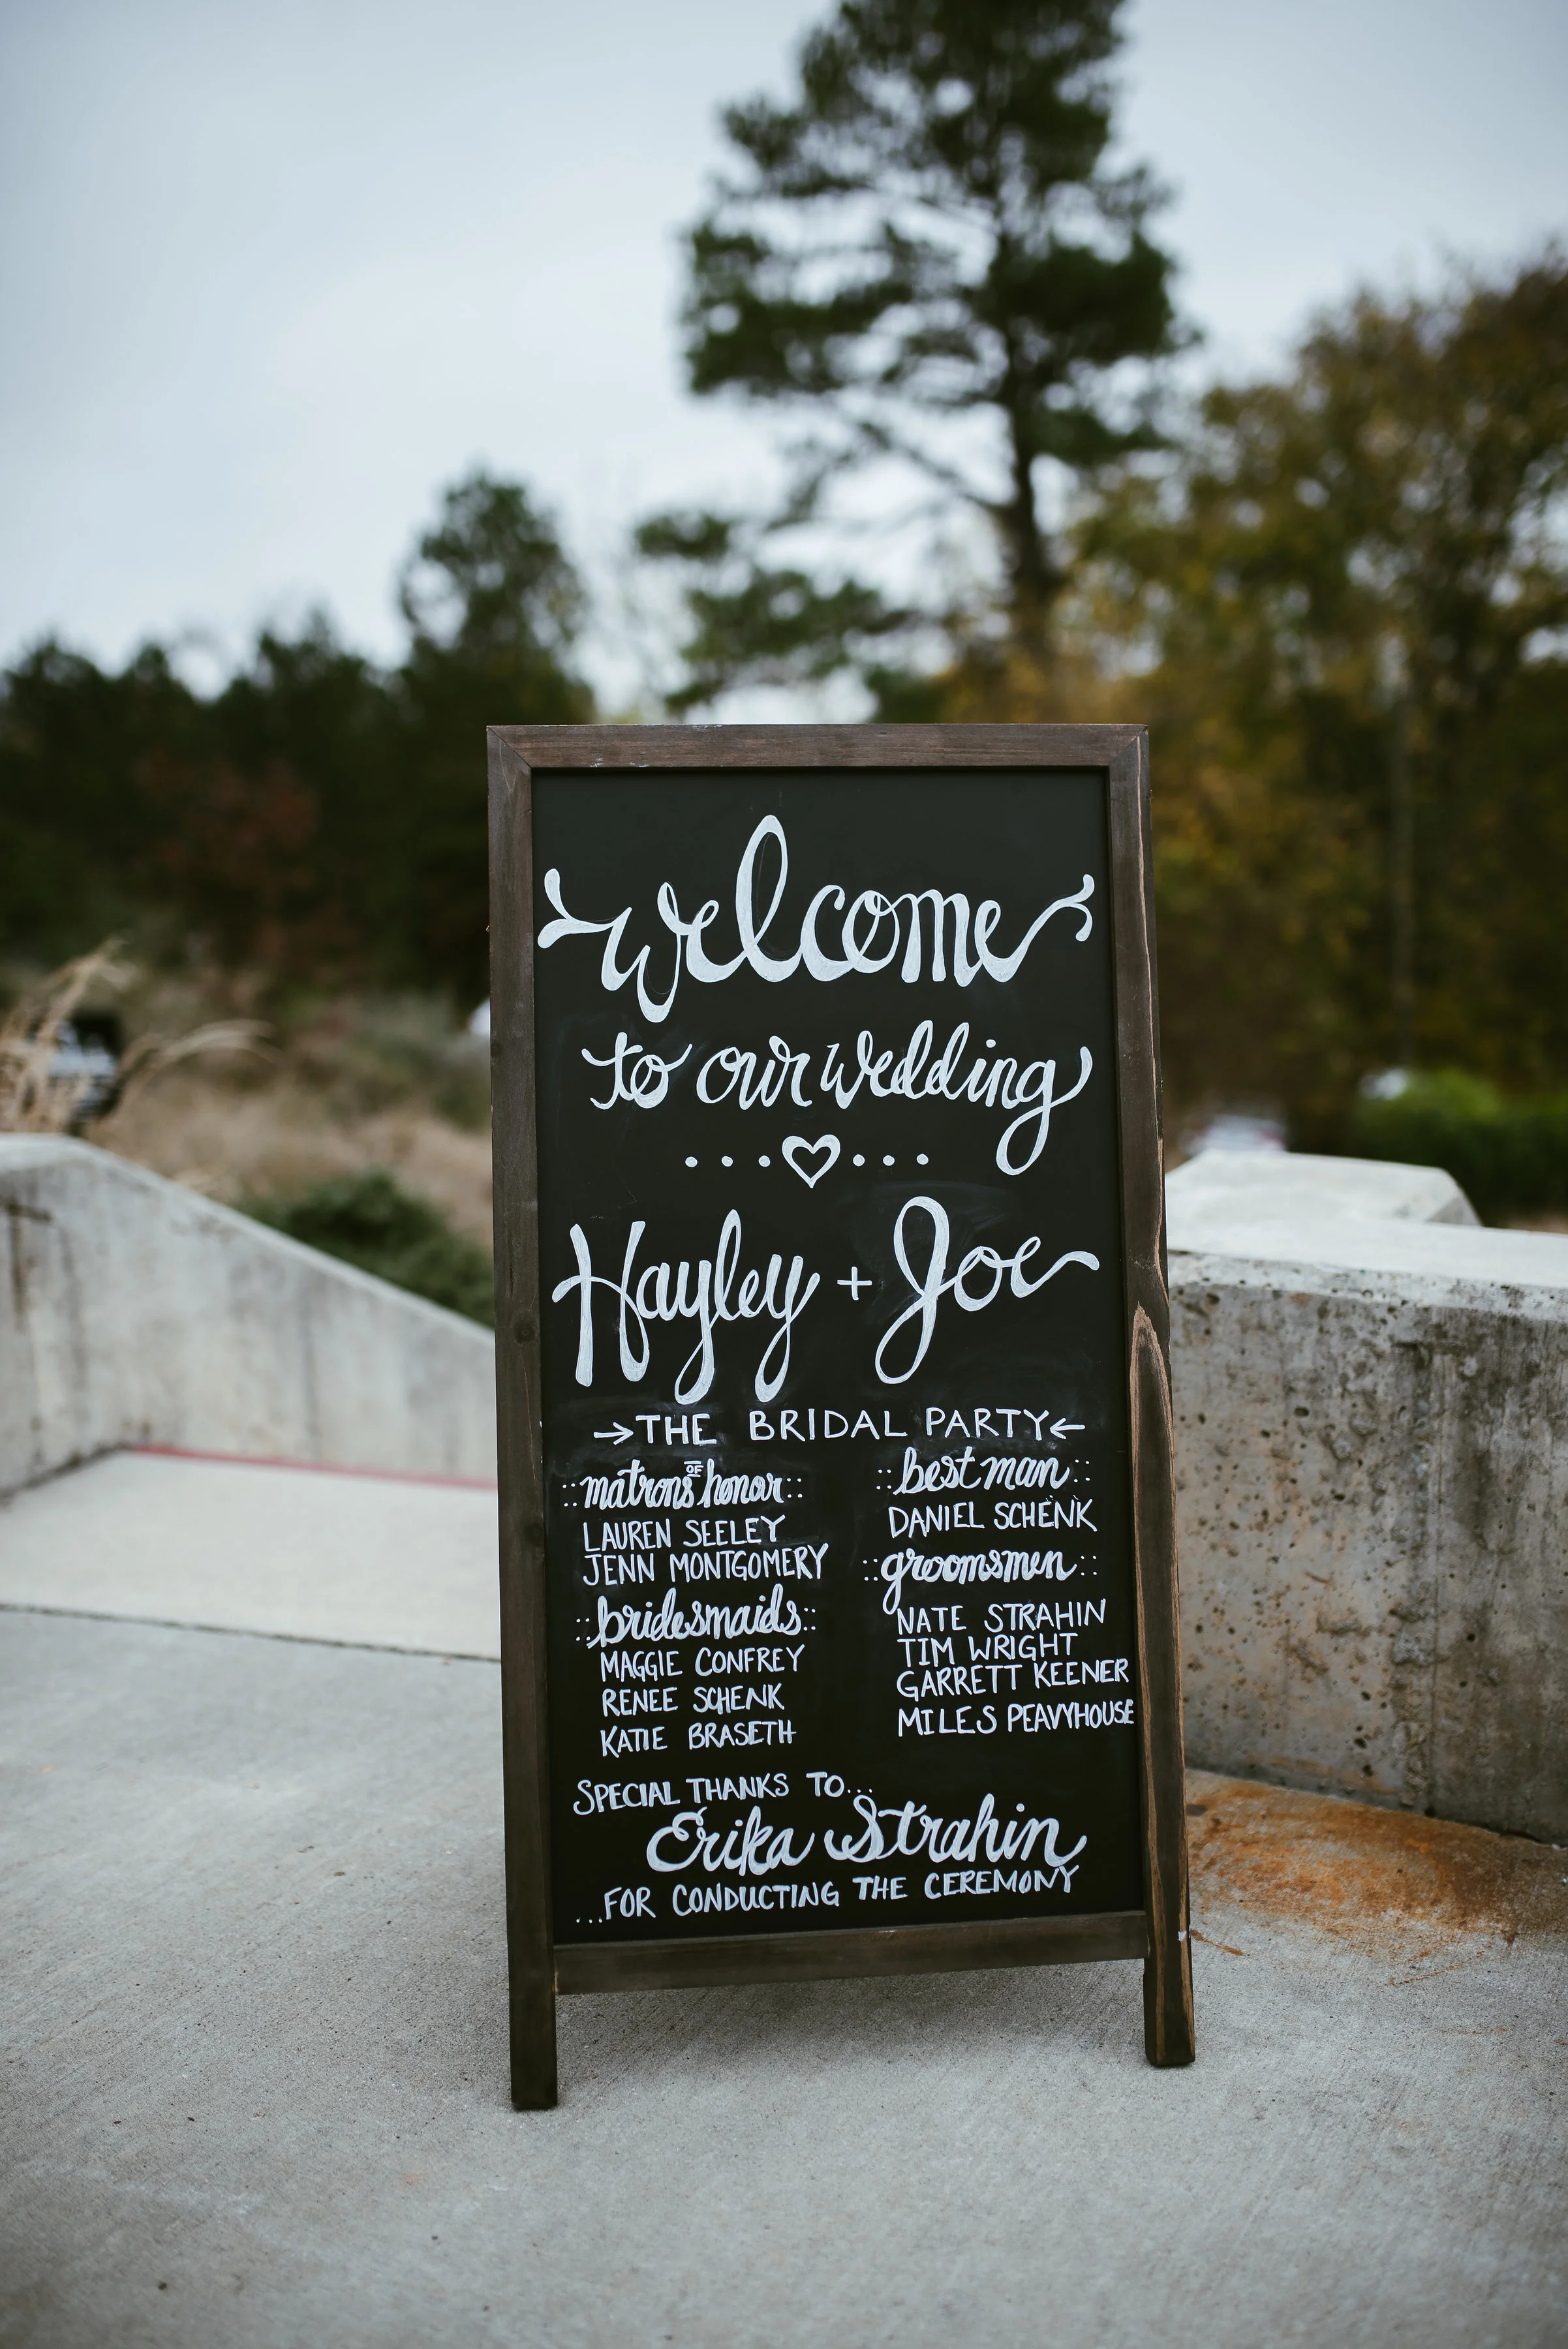 welcome
to our wedding
Hayley + Joe
→THE BRIDAL PARTY←
::matrons OF honor::
LAUREN SEELEY
JENN MONTGOMERY
::bridesmaids::
MAGGIE CONFREY
RENEE SCHENK
KATIE BRASETH
::best man::
DANIEL SCHENK
::groomsmen::
NATE STRAHIN
TIM WRIGHT
GARRETT KEENER
MILES PEAVYHOUSE
SPECIAL THANKS TO...
Erika Strahin
...FOR CONDUCTING THE CEREMONY